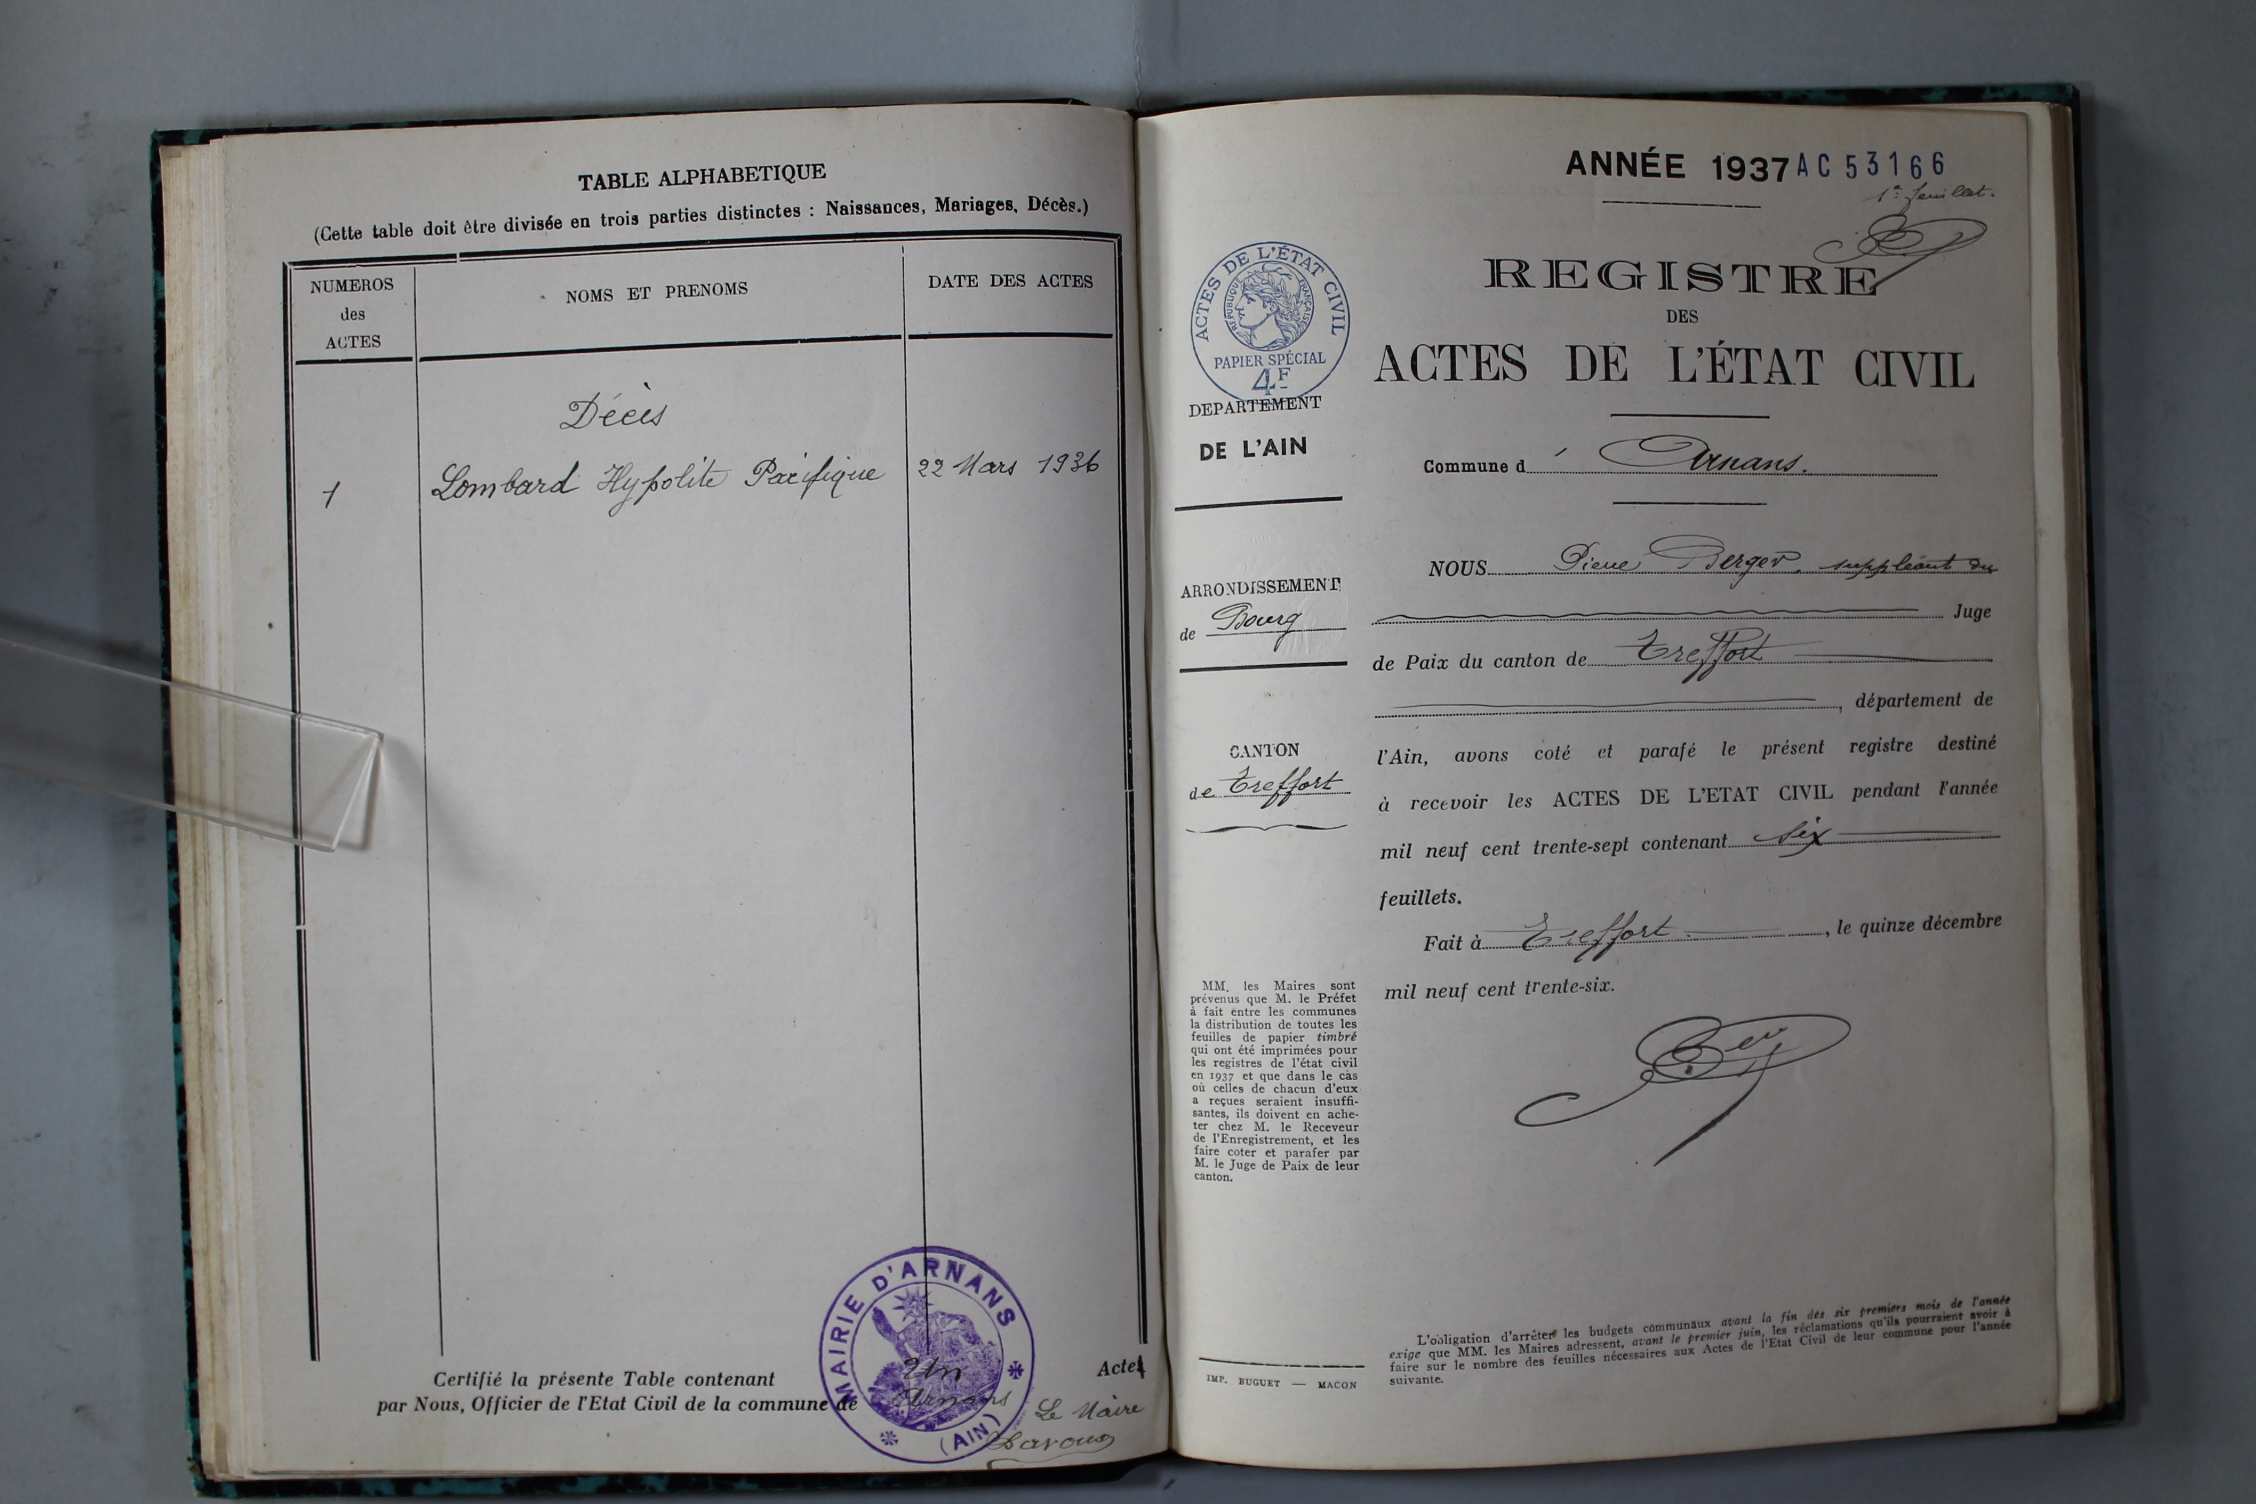 TABLE ALPHABETIQUE
(Cette table doit être divisée en trois parties distinctes : Naissances, Mariages, Décès.)
NUMEROS
des
ACTES
NOMS ET PRENOMS
DATE DES ACTES
Décès
1 Lombard Hypolite Pacifique 22 Mars 1936
Certifié la présente Table contenant Un Acte
par Nous, Officier de l'Etat Civil de la commune de Arnans
Le Maire
MAIRIE D'ARNANS
(AIN)
ANNÉE 1937 AC 53166
1er feuillet.
ACTES DE L'ÉTAT CIVIL
RÉPUBLIQUE FRANÇAISE
PAPIER SPÉCIAL
4F
DEPARTEMENT
DE L'AIN
ARRONDISSEMENT
de Bourg
CANTON
de Treffort
MM. les Maires sont
prévenus que M. le Préfet
à fait entre les communes
la distribution de toutes les
feuilles de papier timbré
qui ont été imprimées pour
les registres de l'état civil
en 1937 et que dans le cas
où celles de chacun d'eux
a reçues seraient insuffi-
santes, ils doivent en ache-
ter chez M. le Receveur
de l'Enregistrement, et les
faire coter et parafer par
M. le Juge de Paix de leur
canton.
IMP. BUGUET — MACON
REGISTRE
DES
ACTES DE L'ÉTAT CIVIL
Commune d' Arnans.
NOUS Pierre Berger, suppléant du
Juge
de Paix du canton de Treffort
, département de
l'Ain, avons coté et parafé le présent registre destiné
à recevoir les ACTES DE L'ETAT CIVIL pendant l'année
mil neuf cent trente-sept contenant six
feuillets.
Fait à Treffort, le quinze décembre
mil neuf cent trente-six.
L'obligation d'arrêter les budgets communaux avant la fin des six premiers mois de l'année
exige que MM. les Maires adressent, avant le premier juin, les réclamations qu'ils pourraient avoir à
faire sur le nombre des feuilles nécessaires aux Actes de l'Etat Civil de leur commune pour l'année
suivante.